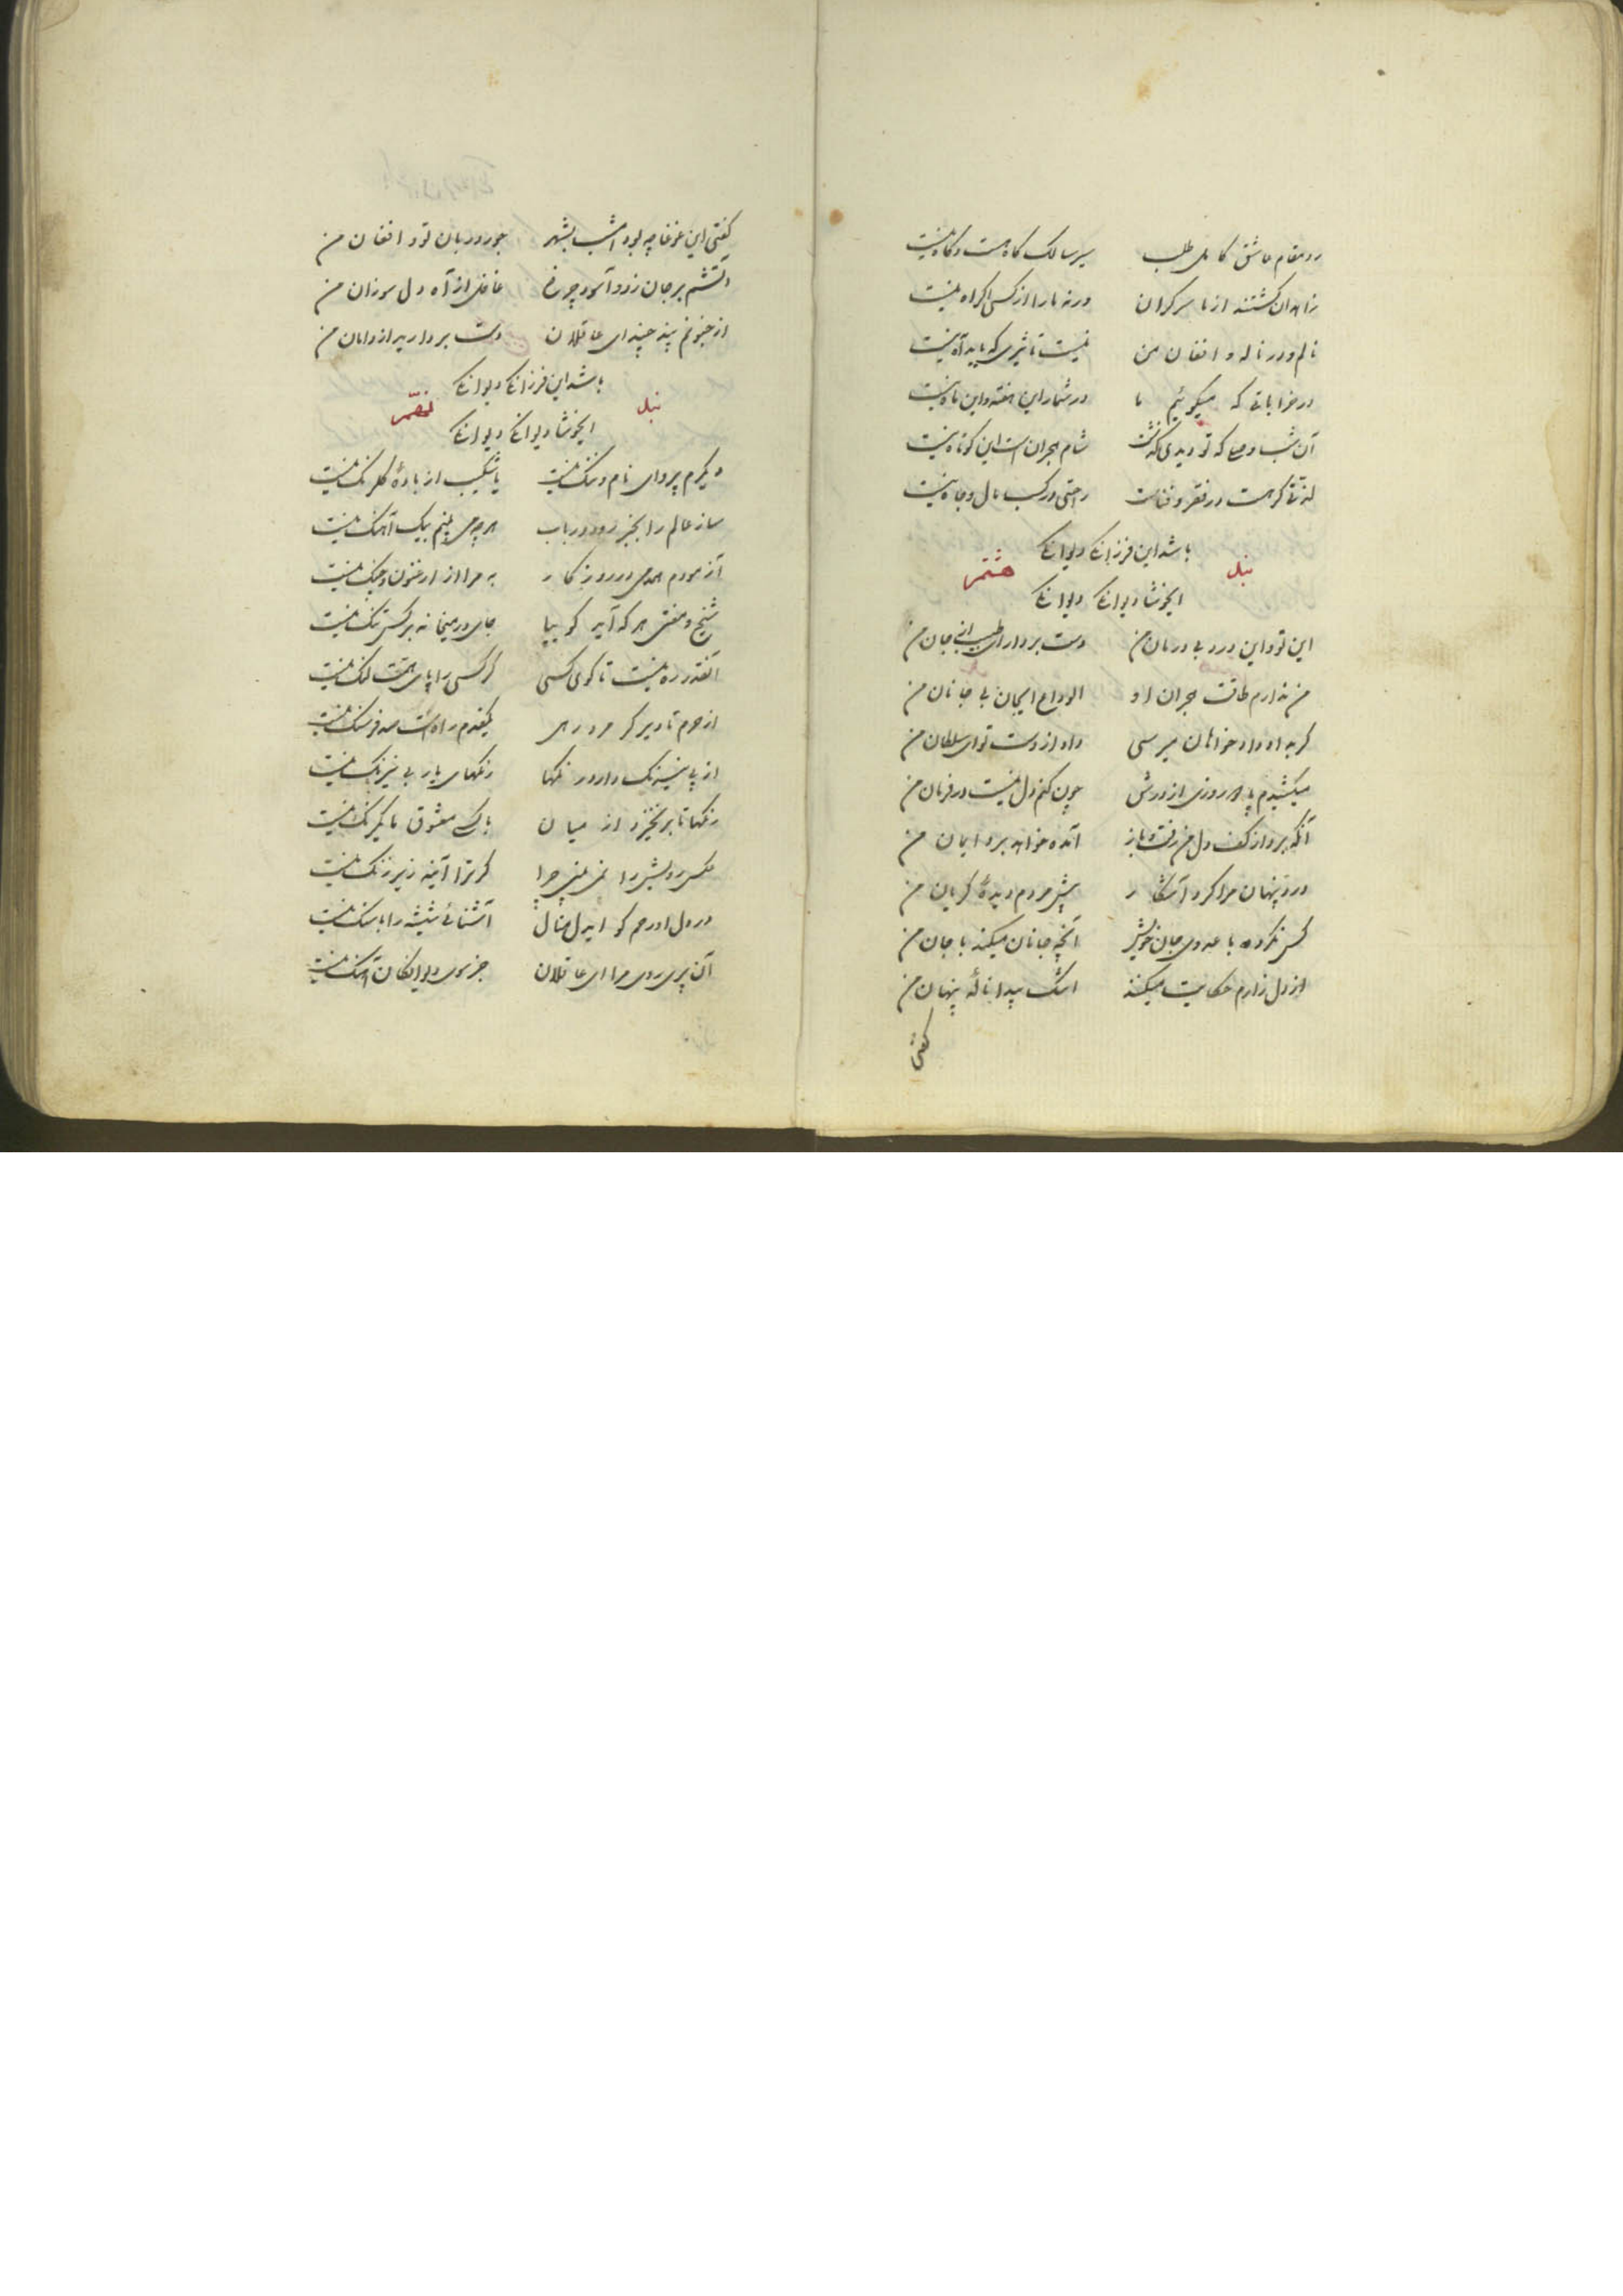 رو مقام عاشق کامل طلب سیر سالک گاه هست و گاه نیست
زاهدان گشتند از ما سرگران ورنه ما را از کسی اکراه نیست
نالم و در ناله و افغان من نیست تاثیری که باید آه نیست
در خراباتی که میگوئیم ما در شمار این هفته و این ماه نیست
آن شب وصلی که تو دیدی گذشت شام هجران است این کوتاه نیست
لذتی گر هست در فقر و فناست راحتی در کسب مال و جاه نیست
باشد این فرزانگی دیوانگی
بند هشتم
ایخوشا دیوانگی دیوانگی
این تو و این درد بی درمان من دست بردار ای طبیب از جان من
من ندارم طاقت هجران او الوداع ایجان بی جانان من
گر به داد دادخواهان میرسی داد از دست تو ای سلطان من
میکشیدم پا اگر روزی از درش چون کنم دل نیست در فرمان من
آنکه برد از کف دل من رفت و باز آمده خواهد برد ایمان من
درد پنهان مرا کرد آشکار پیش مردم دیدهٔ گریان من
کس نکرده با عدوی جان خویش آنچه جانان میکند با جان من
از دل زارم حکایت میکند اشک پیدا نالهٔ پنهان من
گفتی
گفتی این غوغا چه بود امشب بشهر جور دربان تو و افغان من
آتشم بر جان زد و آسود چرخ غافل از آه دل سوزان من
از جنونم پند چند ای عاقلان دست بردارید از دامان من
باشد این فرزانگی دیوانگی
بند نهم
ایخوشا دیوانگی دیوانگی
دیگرم پروای نام و ننگ نیست یا شکیب از بادهٔ گلرنگ نیست
ساز عالم را بجز رود و رباب هرچه می بینم بیک آهنگ نیست
آزمودم همدمی در روزگار به مرا از ارغنون و چنگ نیست
شیخ و مفتی هر که آید گو بیا جای در میخانه بر کس تنگ نیست
آنقدر ره نیست تا کوی کسی گر کسی را پای همت لنگ نیست
از حرم تا دیر گر مرد رهی یکقدم راه است صد فرسنگ نیست
از پی نیرنگ دارد رنگها رنگهای یار بی نیرنگ نیست
رنگها تا برنخیزد از میان با کسی معشوق ما یکرنگ نیست
عکس رویش را نمی بینی چرا گر ترا آئینه زیر زنگ نیست
در دل او رحم کو ایدل منال آشنائی شیشه را با سنگ نیست
آن پری روی مرا ای عاقلان جز بسوی دیوانگان آهنگ نیست